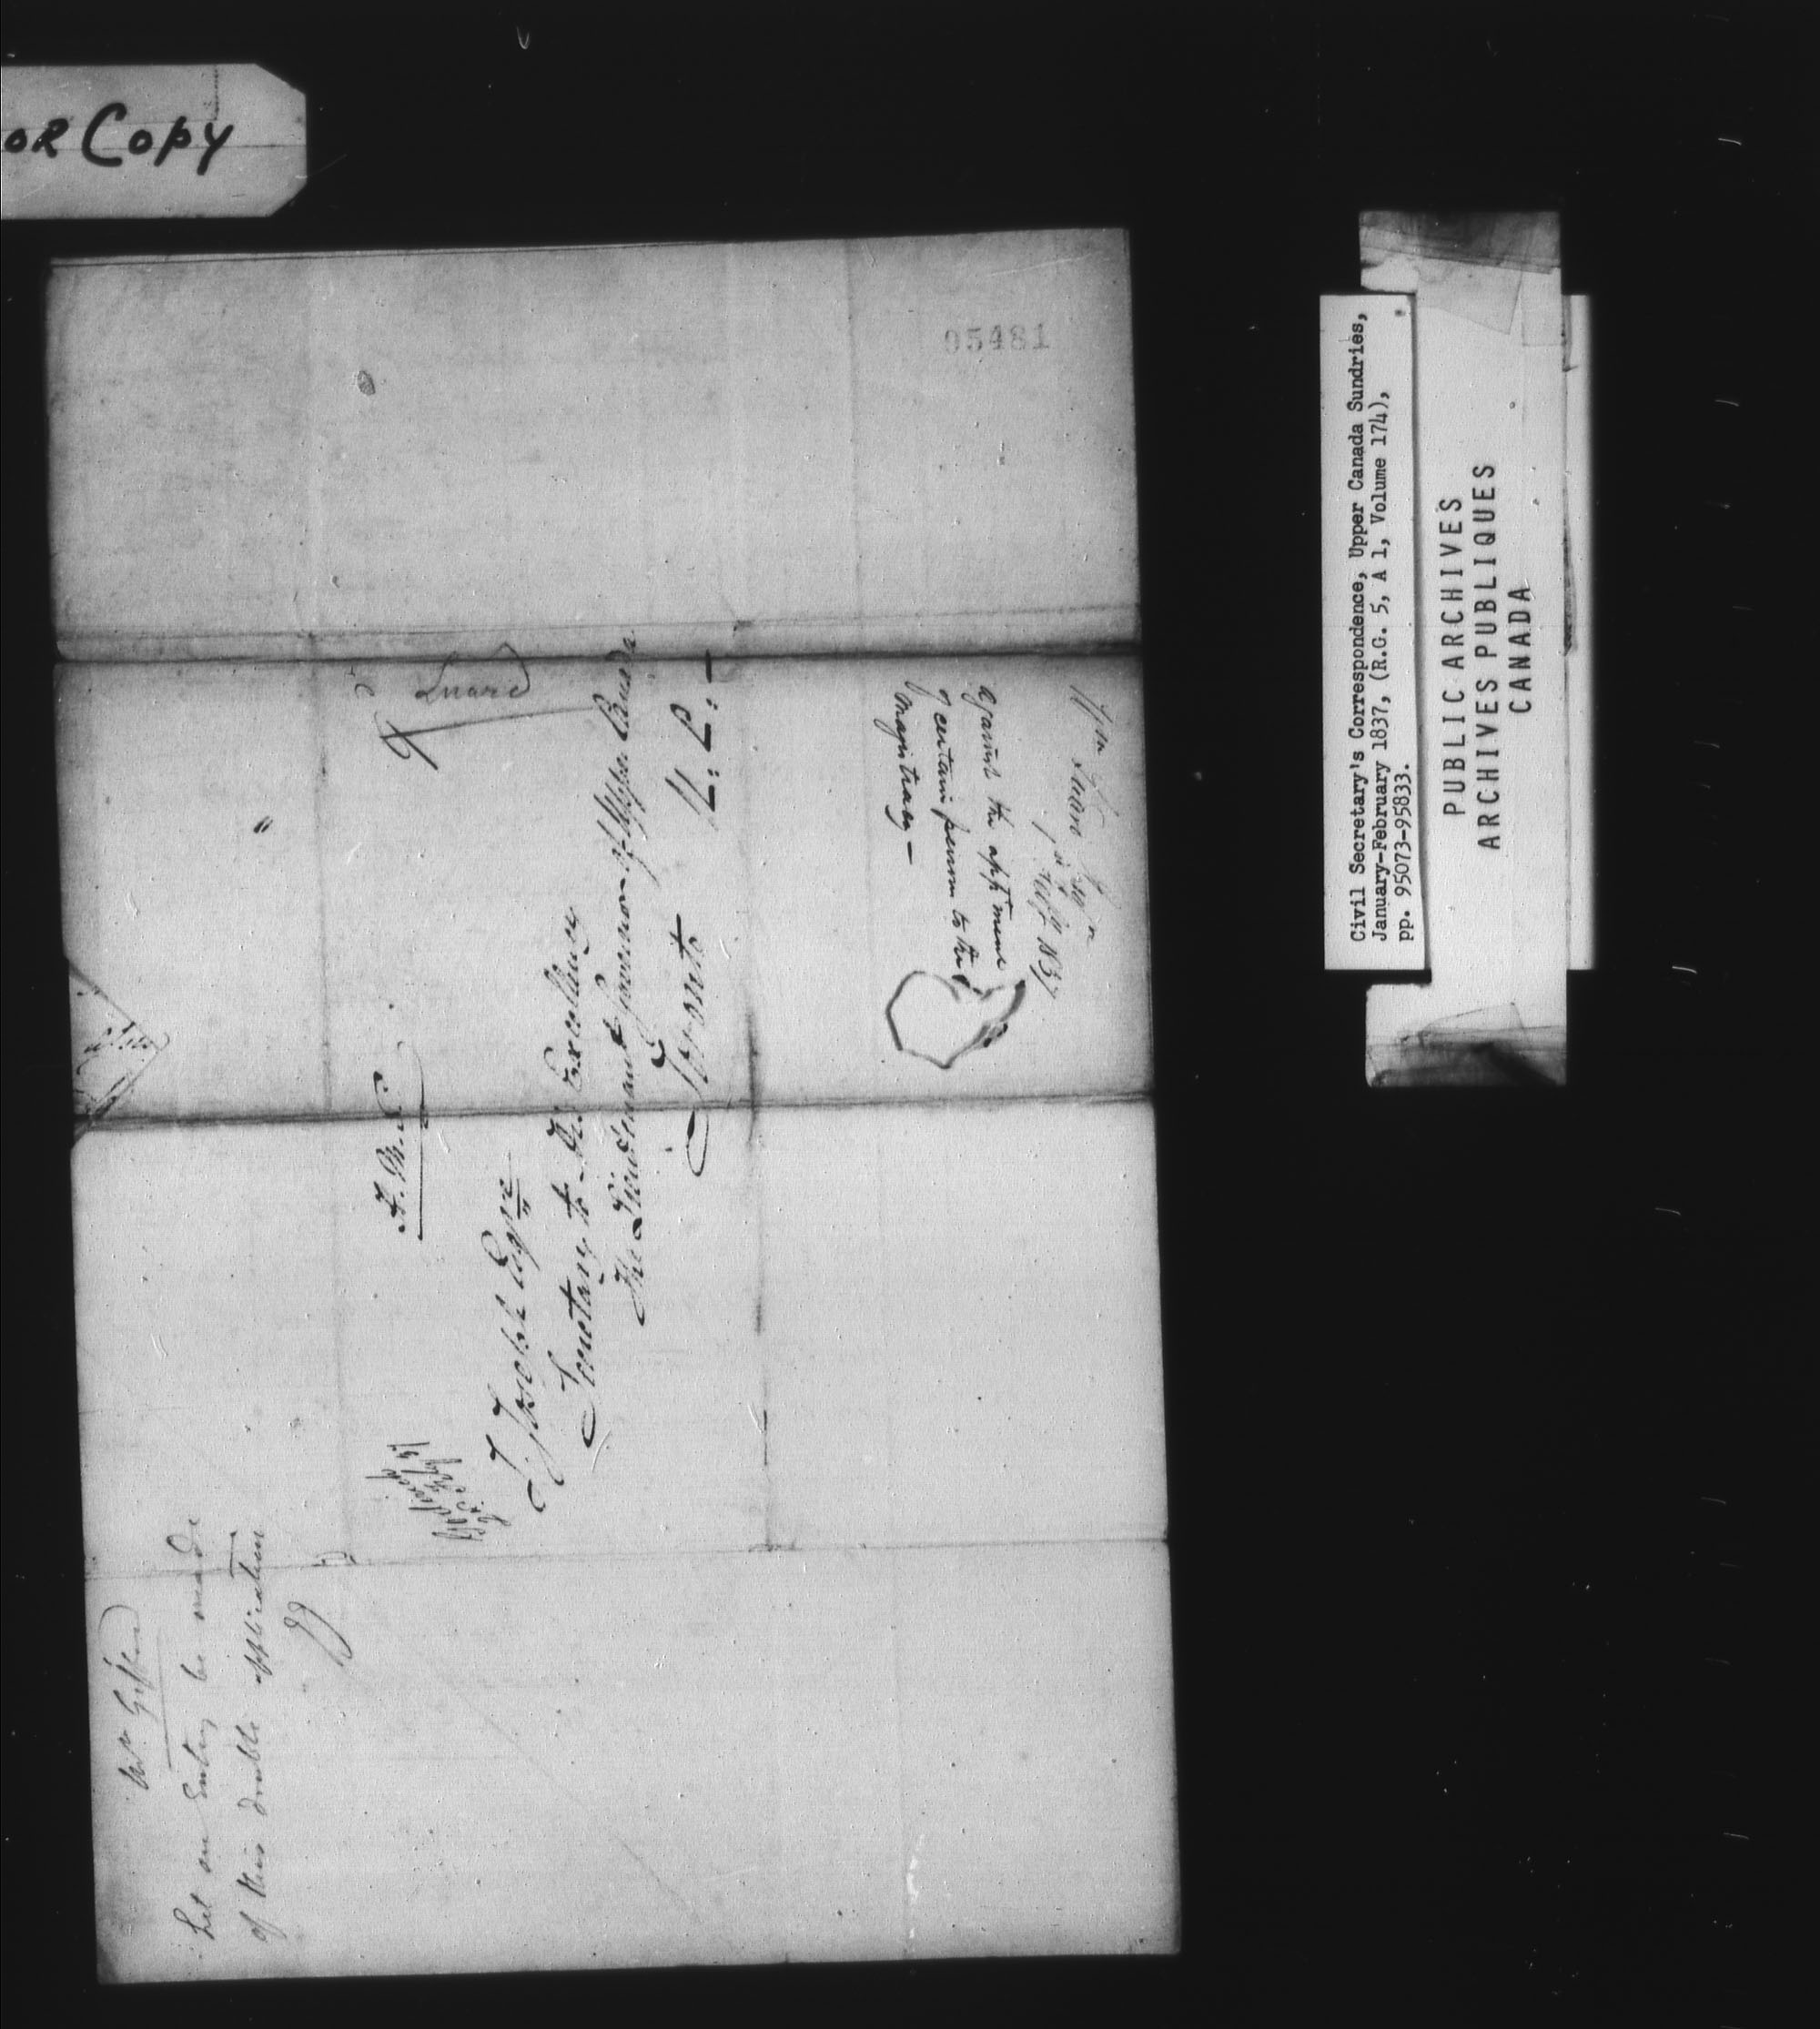 OR COPY
95481
Mr. Giffard
Let an Entry be made
of this double application
Goderich
2d Feby 37
H. M. S.
J. Joseph Esqre
Secretary to His Excellency
The Lieutenant Governor of Upper Canada
Toronto U: C: -
1st Feby 1837
against the apptment
of certain persons to the
magistracy -
Civil Secretary's Correspondence, Upper Canada Sundries,
January-February 1837, (R.G. 5, A 1, Volume 174),
pp. 95073-95833.
PUBLIC ARCHIVES
ARCHIVES PUBLIQUES
CANADA